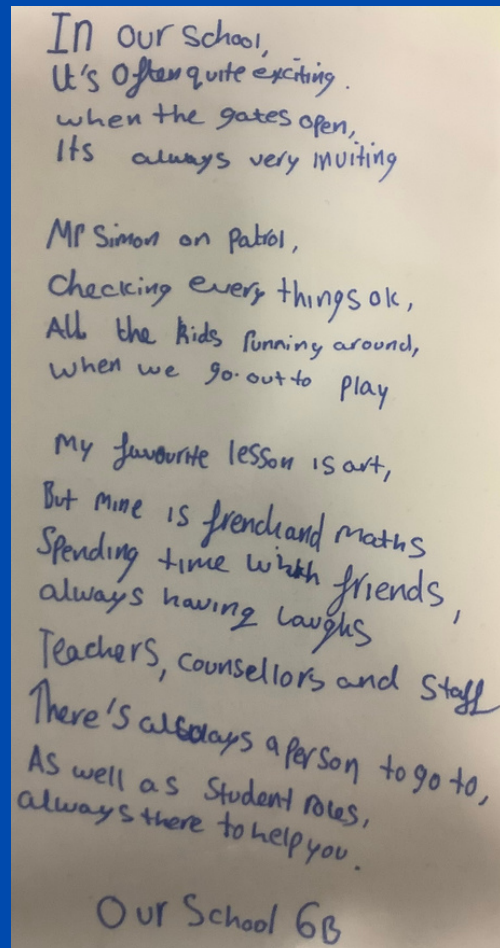 In our school,
It's Often quite exciting.
when the gates open,
Its always very inviting
Mr Simon on Patrol,
Checking every things ok,
All the kids running around,
when we go out to play
My favourite lesson is art,
But mine is french and maths
Spending time with friends,
always having laughs
Teachers, counsellors and staff
There's always a person to go to,
As well as Student roles,
always there to help you.
Our School 6B